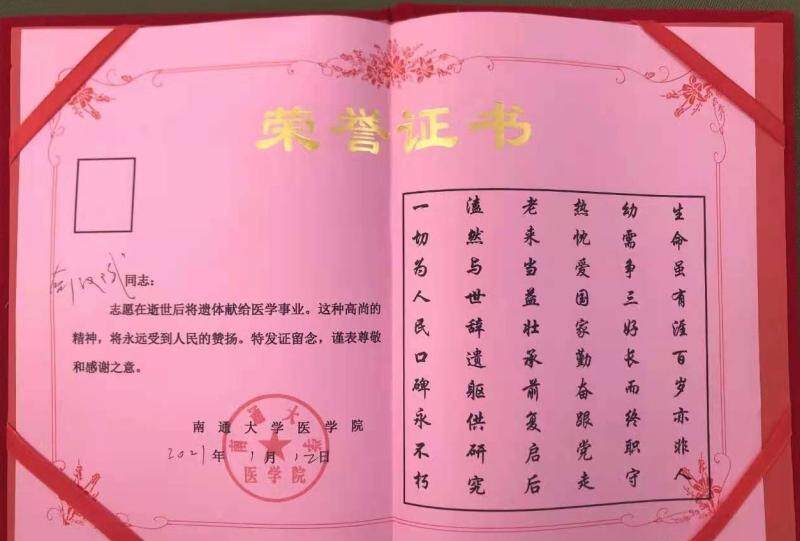 荣誉证书
同志：
志愿在逝世后将遗体献给医学事业。这种高尚的
精神，将永远受到人民的赞扬。特发证留念，谨表尊敬
和感谢之意。
南通大学医学院
2021年1月12日
南通大学
医学院
生命虽有涯百岁亦非人
幼需争三好长而终职守
热忱爱国家勤奋跟党走
老来当益壮承前复启后
溘然与世辞遗躯供研究
一切为人民口碑永不朽